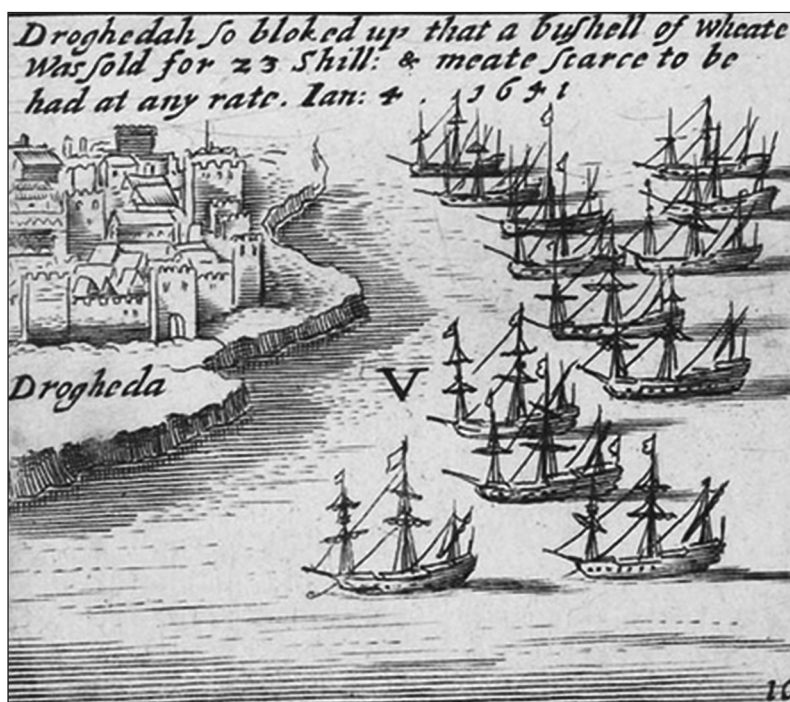 Droghedah ſo bloked up that a buſhell of wheate
Was ſold for 23 Shill: & meate ſcarce to be
had at any rate. Ian: 4 . 1641
Drogheda
V